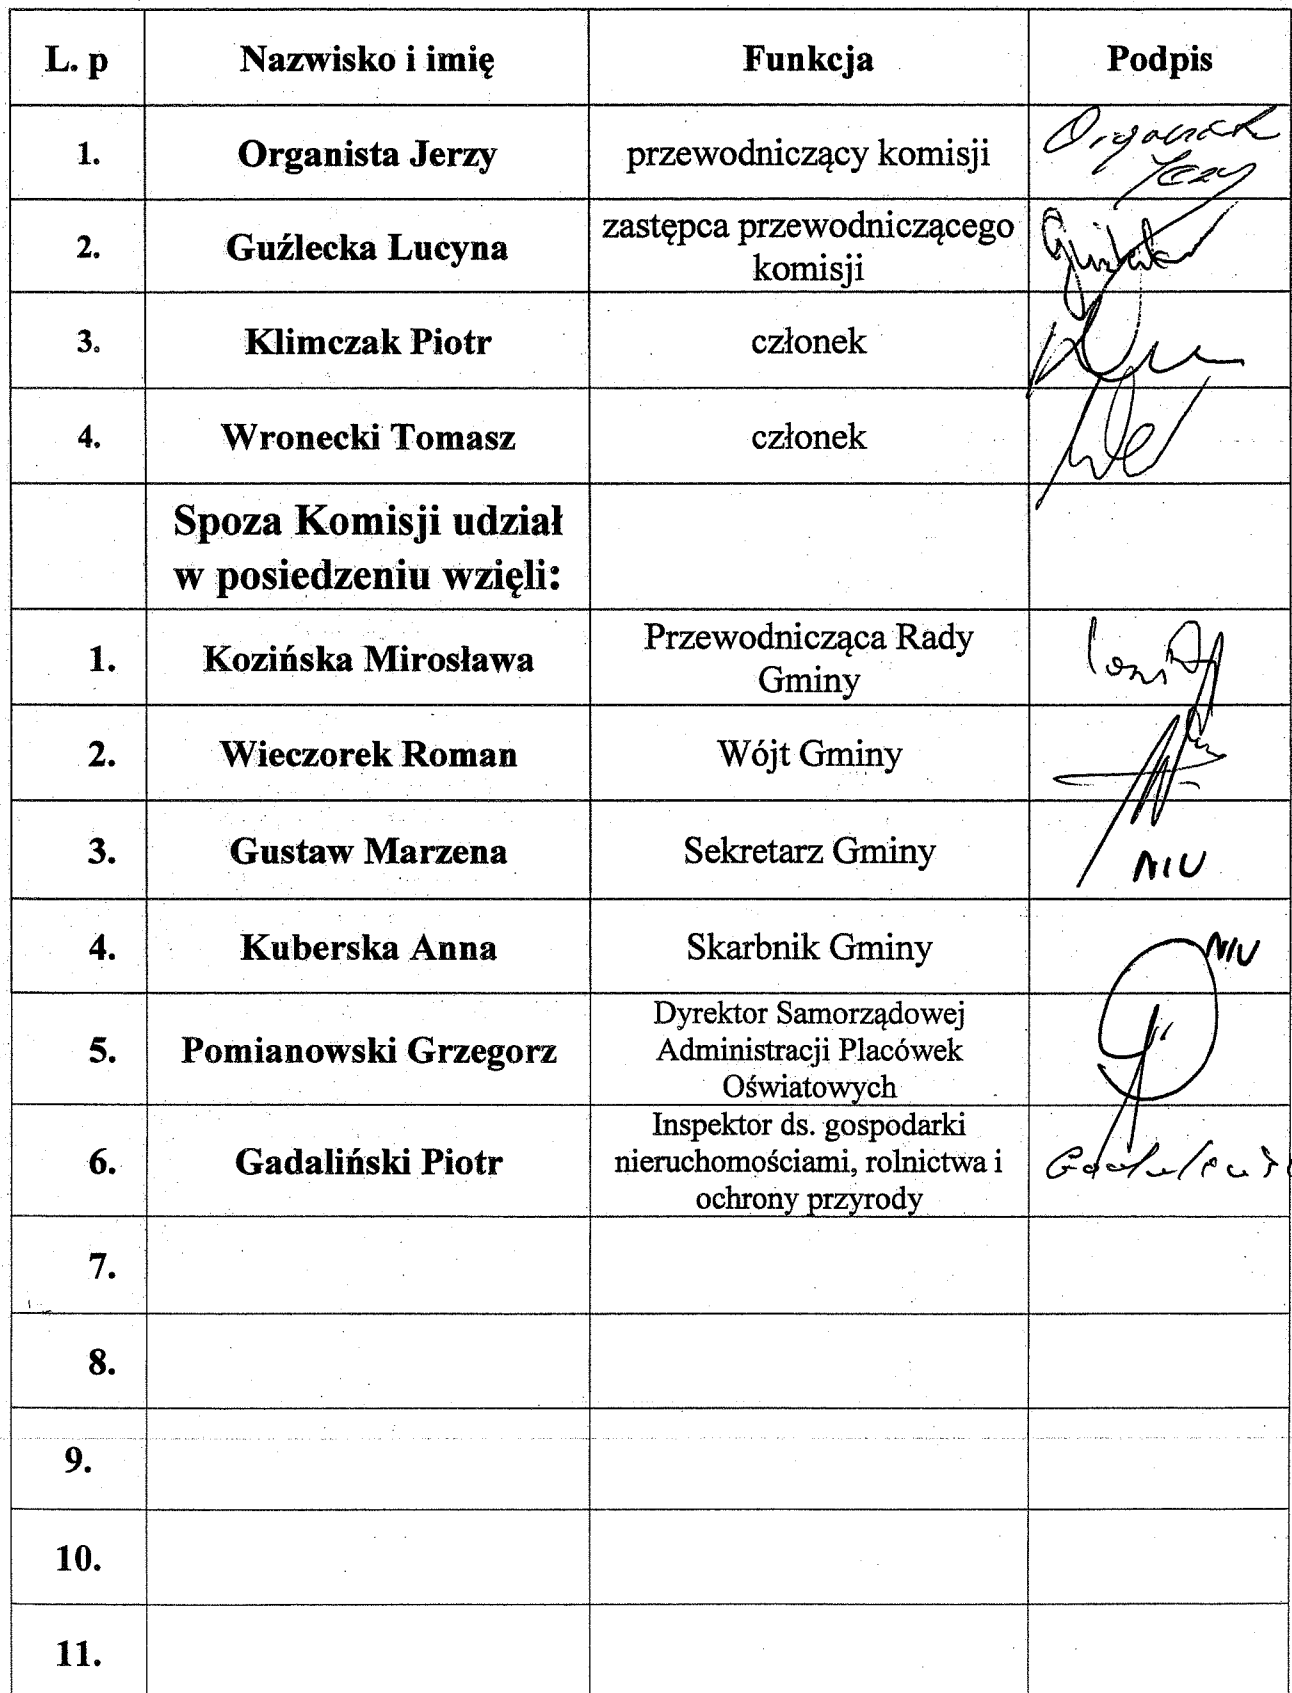 L. p Nazwisko i imię Funkcja Podpis
1. Organista Jerzy przewodniczący komisji
Jerzy
2. Guźlecka Lucyna zastępca przewodniczącego
komisji
3. Klimczak Piotr członek
4. Wronecki Tomasz członek
Spoza Komisji udział
w posiedzeniu wzięli:
1. Kozińska Mirosława Przewodnicząca Rady
Gminy
2. Wieczorek Roman Wójt Gminy
3. Gustaw Marzena Sekretarz Gminy NIU
4. Kuberska Anna Skarbnik Gminy NIU
5. Pomianowski Grzegorz Dyrektor Samorządowej
Administracji Placówek
Oświatowych
6. Gadaliński Piotr Inspektor ds. gospodarki
nieruchomościami, rolnictwa i
ochrony przyrody
7.
8.
9.
10.
11.